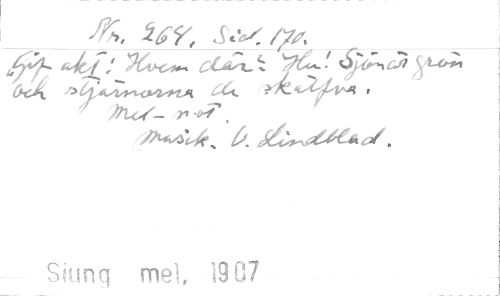 Nr. 264, Sid. 170.
"Gif akt! Hvem där? Hu! Sjön är grön
och stjärnorna de skälfva.
Mel-not.
Musik. O. Lindblad.
Sjung mel, 1907